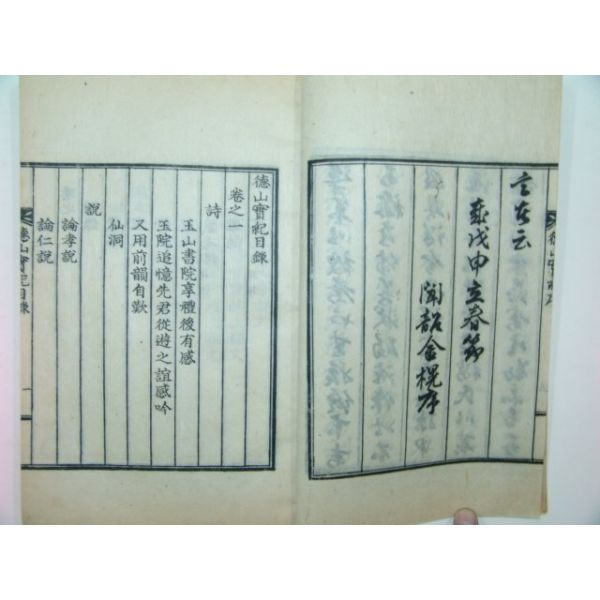 言爾云
歲戊申立春節
聞韶金榥序
德山實紀目錄
卷之一
詩
玉山書院享禮後有感
玉院追憶先君從遊之誼感吟
又用前韻自歎
仙洞
說
論孝說
論仁說
德山實紀目錄
一